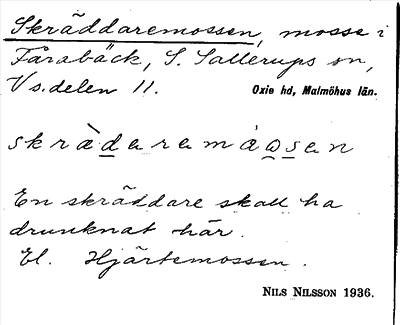 Skräddaremossen, mosse i
Fårabäck, S. Sallerups sn,
V s.delen 11. Oxie hd, Malmöhus län.
skrä̀daremåsen
En skräddare skall ha
drunknat här.
El. Hjärtemossen.
NILS NILSSON 1936.